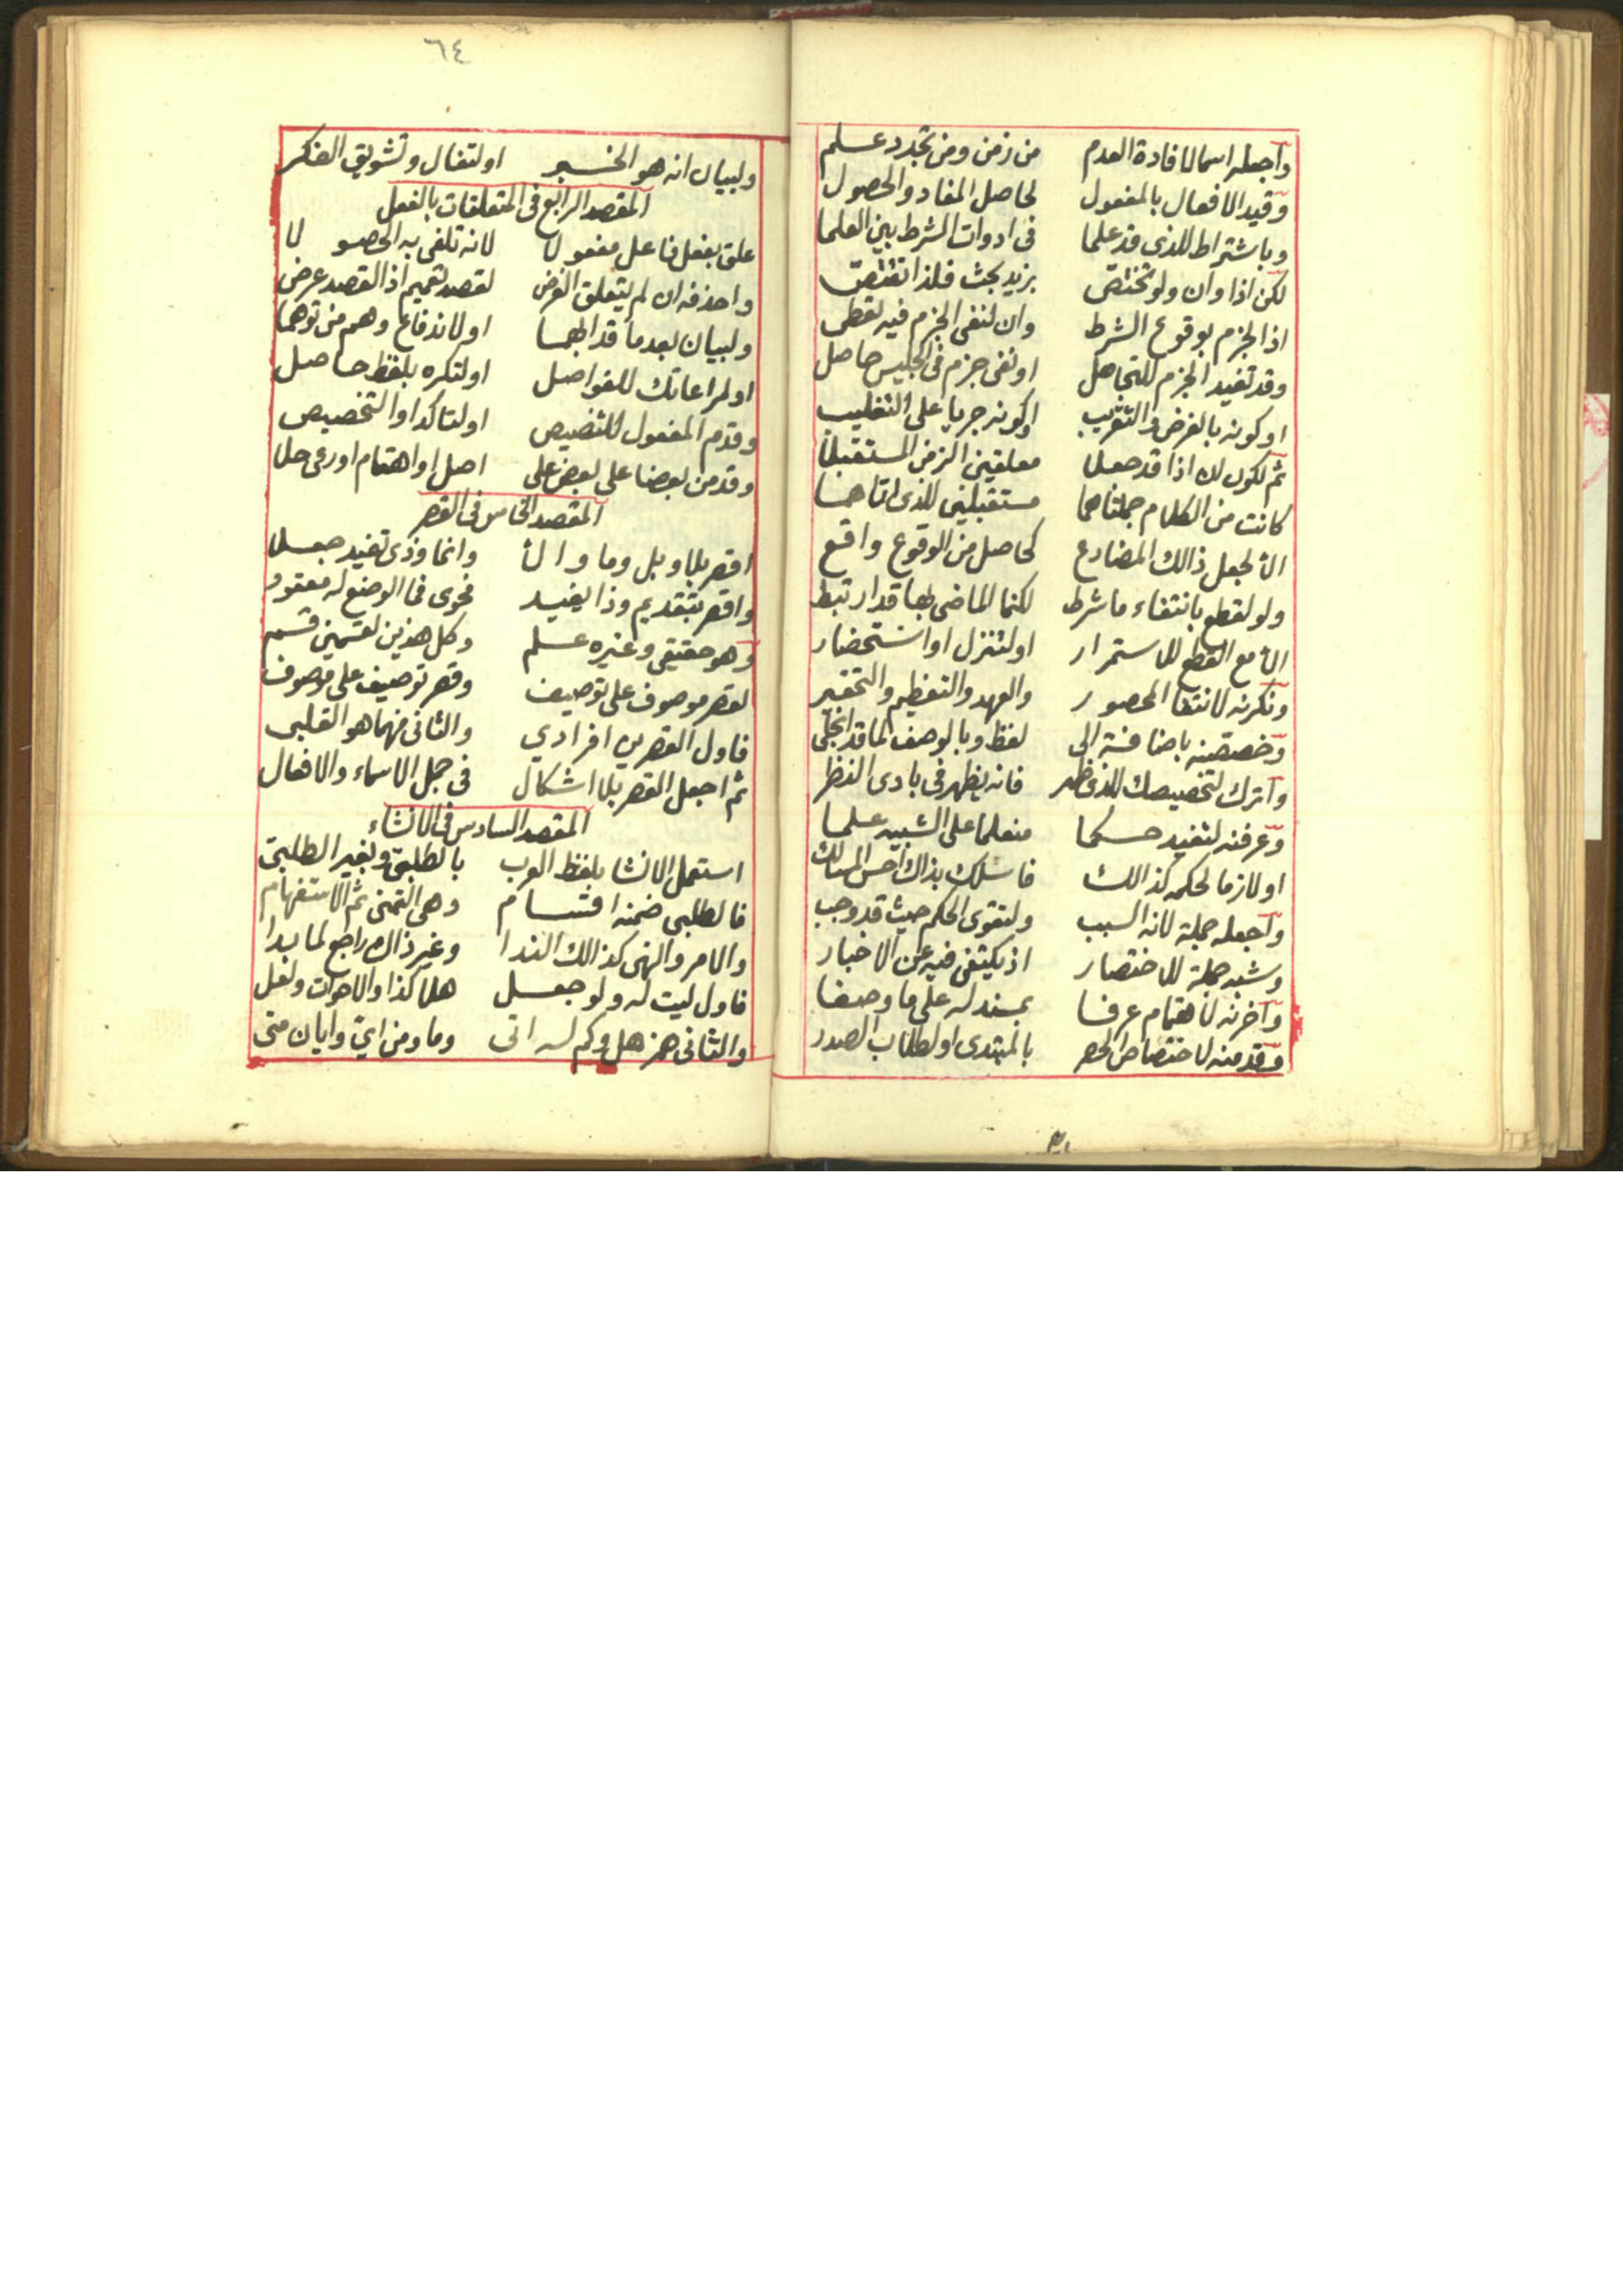 واجعله اسما لافادة العدم من زمن ومن تجدد علم
وقيد الافعال بالمفعول لحاصل المفاد والحصول
وباشتراط للذى قد علما فى ادوات الشرط بين العلما
لكن اذا وان ولو تختص بزيد بحث فلذا تقتص
اذا لجزم بوقوع الشرط وان لنفى الجزم فيه تعطى
وقد تفيد الجزم للتجاهل او نفى جزم فى الجليس حاصل
او كونه بالفرض والتقريب او كونه جريا على التغليب
ثم لكون ان اذا قد جعلا معلقين الزمن المستقبلا
كانت من الكلام جملتاهما مستقبلين للذى اتاهما
الا لجعل ذالك المضارع كحاصل من الوقوع واقع
ولو لقطع بانتفاء ما شرط لكنما الماضى بها قد ارتبط
الا مع القطع للاستمرار او لتنزل او استحضار
ونكرنه لانتفا المحصور والعهد والتعظيم والتحقير
وخصصنه باضافة الى لفظ وبالوصف لما قد انجلى
واترك لتخصيصك للذى ظهر فانه يظهر فى بادى النظر
وعرفنه لتفيد حكما منعلما على الشبيه علما
او لازما لحكمه كذالك فاسلك بذاك احسن المسالك
واجعله جملة لانه السبب ولتقوى الحكم حيث قد وجب
وشبه جملة للاختصار اذ يكتفى فيه عن الاخبار
واخرنه لاهتمام عرفا بمسند له على ما وصفا
وقدمنه لاختصاص الحصر بالمبتدى او لطلاب الصدر
٦٤
ولبيان انه هو الخبر او لتفال وتشويق الفكر
المقصد الرابع فى المتعلقات بالفعل
علق بفعل فاعل مفعولا لانه تلفى به الحصولا
واحذفه ان لم يتعلق الغرض لقصد تعميم اذ القصد عرض
ولبيان بعد ما قد ابهما او لاندفاع وهم من توهما
او لمراعاتك للفواصل او لتكره بلفظ حاصل
وقدم المفعول للتنصيص او لتاكد او التخصيص
وقدمن بعضا على بعض على اصل او اهتمام او رعى حلا
المقصد الخامس فى القصر
اقصر بلا وبل وما والا وانما وذى تفيد جعلا
واقصر بتقديم وذا يفيد فحوى فما الوضع له معقود
وهو حقيقى وغيره علم وكل هذين لقسمين قسم
لقصر موصوف على توصيف وقصر توصيف على موصوف
فاول القصرين افرادي والثانى منهما هو القلبى
ثم اجعل القصر بلا اشكال فى جمل الاسماء والافعال
المقصد السادس فى الانشاء
استعمل الانشا بلفظ العرب بالطلبى وبغير الطلبى
فالطلبى ضمنه اقتسام وهى التمنى ثم الاستفهام
والامر والنهى كذالك الندا وغير ذاك راجع لما بدا
فاول ليت له ولو جعل هلا كذا والاخوات ولعل
والثانى همز هل وكم له اتى وما ومن اي وايان متى